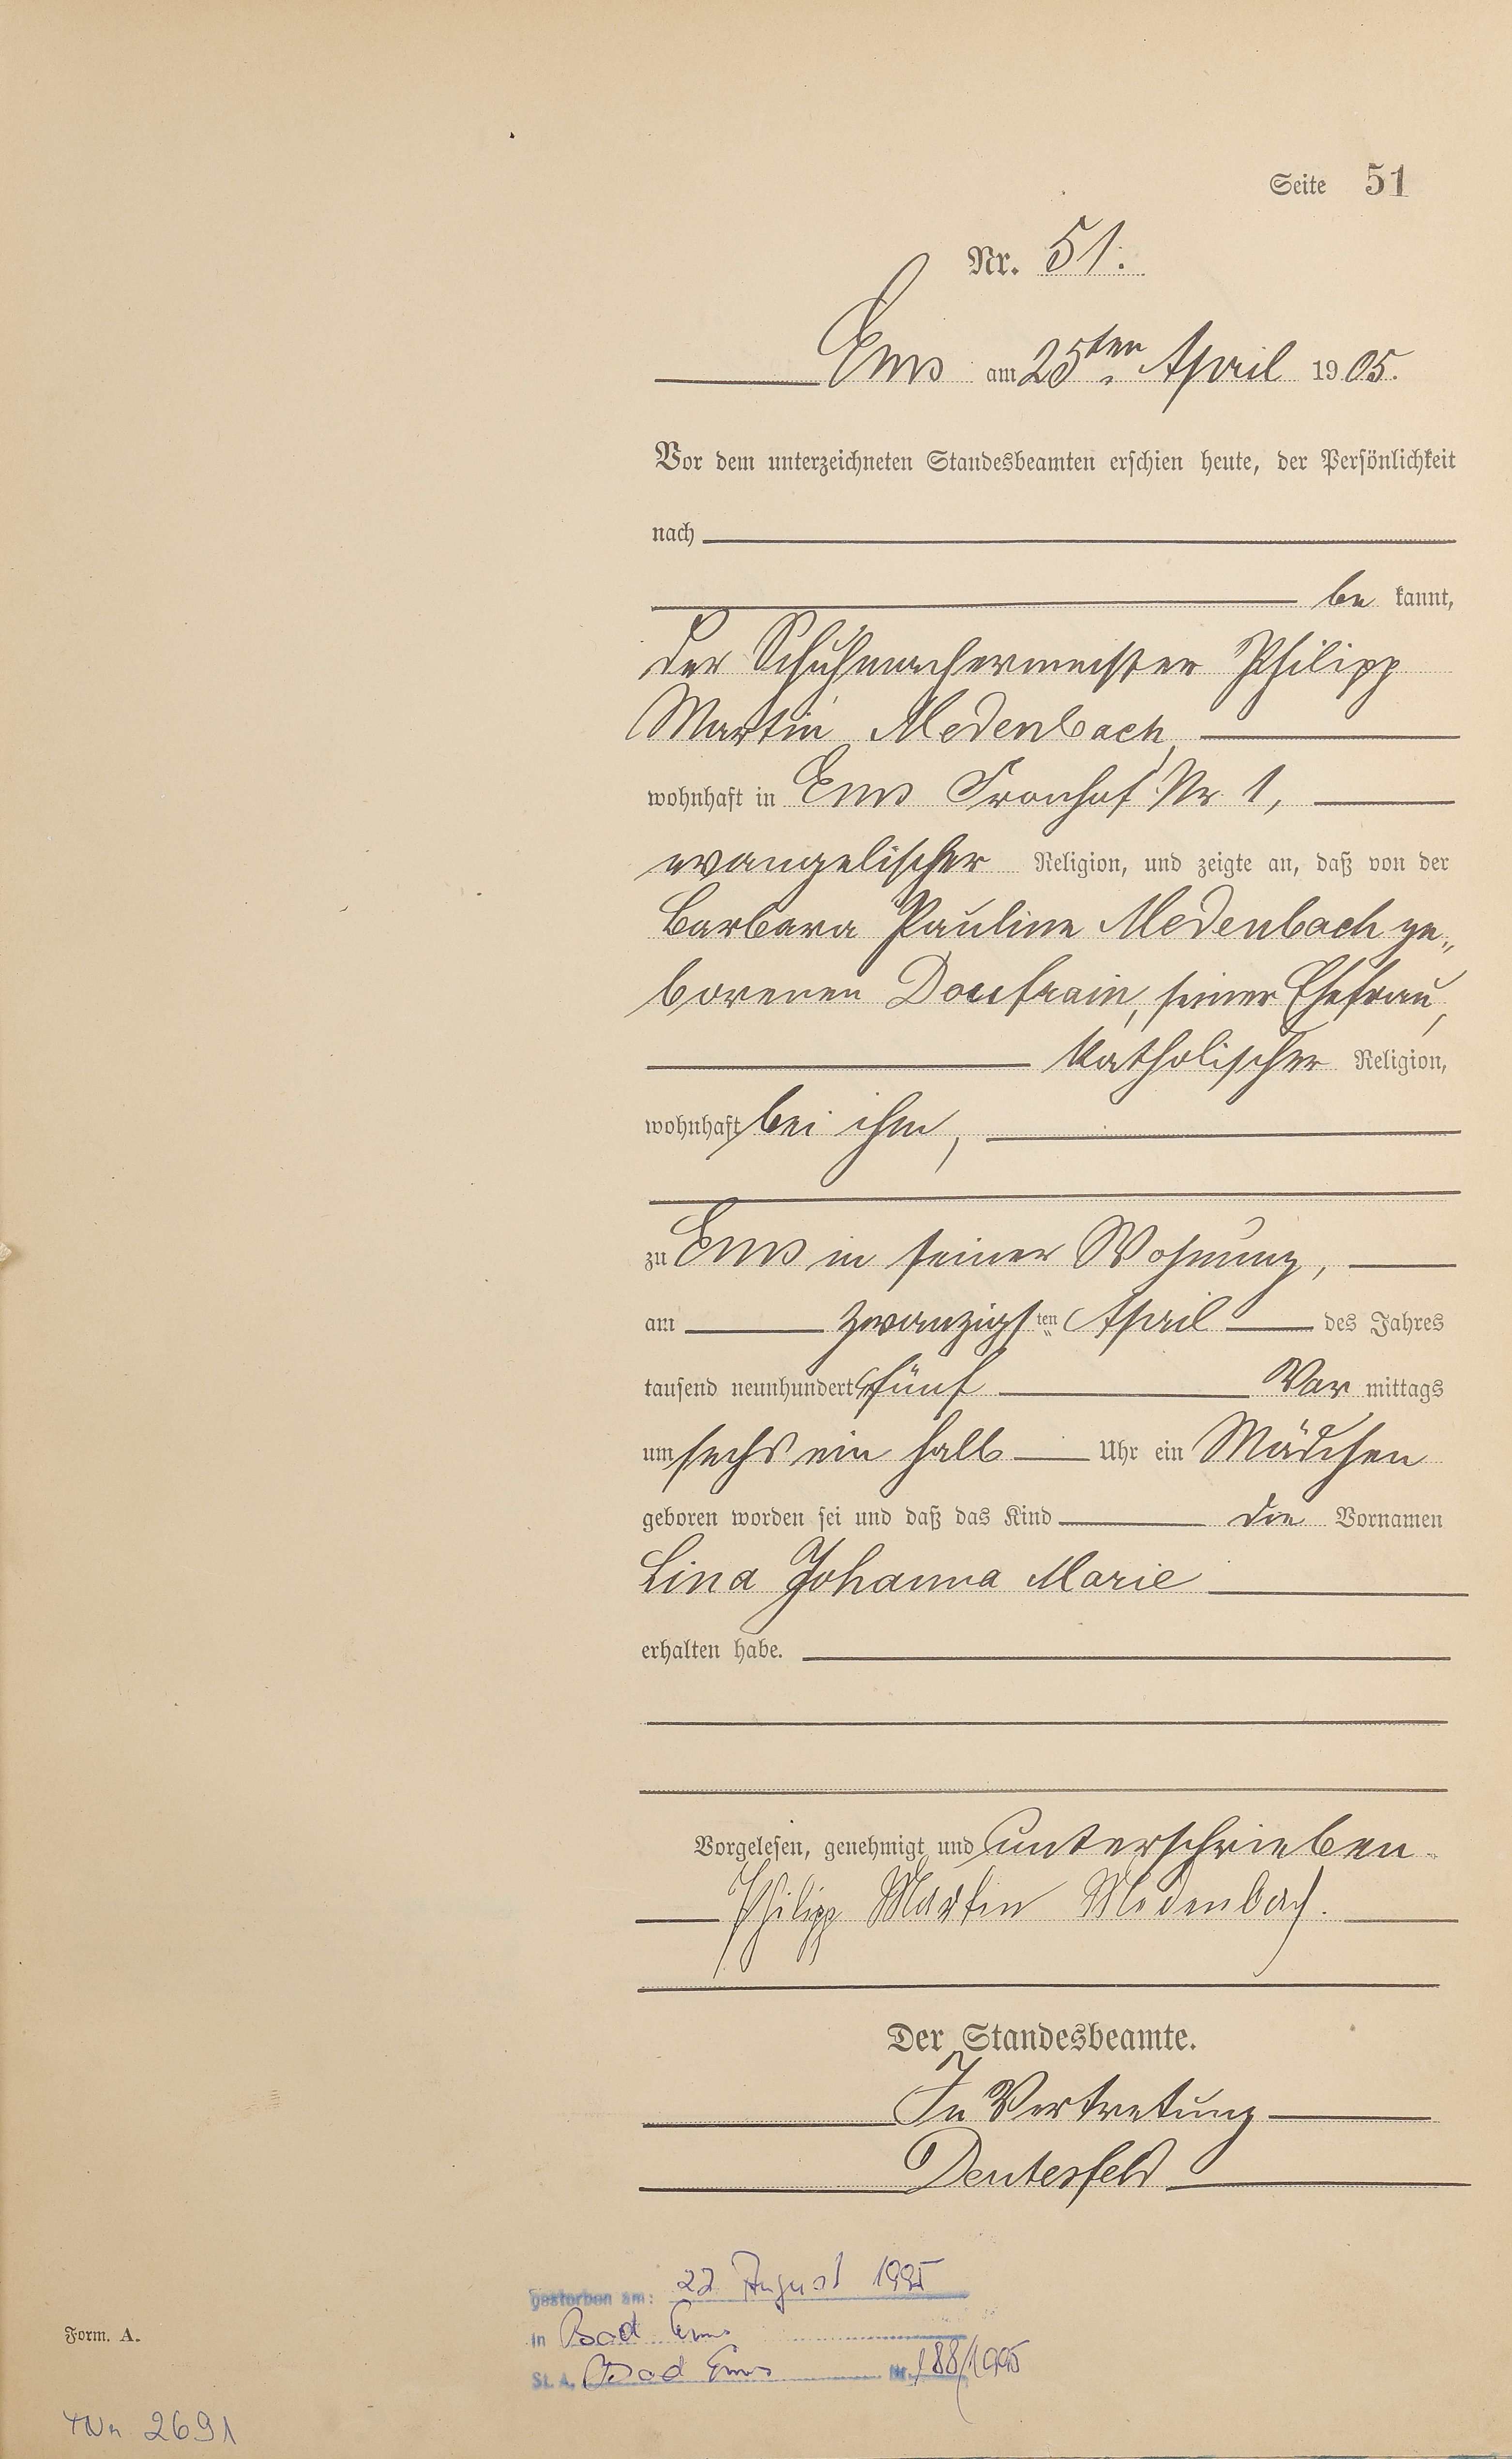 Seite 51
Nr. 51.
Ems am 25ten April 1905.
Vor dem unterzeichneten Standesbeamten erschien heute, der Persönlichkeit
nach
be kannt,
der Schuhmachermeister Philipp
Martin Medenbach,
wohnhaft in Ems Fronhof Nr 1,
evangelischer Religion, und zeigte an, daß von der
Barbara Pauline Medenbach ge„
borenen Doufrain, seiner Ehefrau,
katholischer Religion,
wohnhaft bei ihm,
zu Ems in seiner Wohnung,
am zwanzigsten April des Jahres
tausend neunhundert fünf Vor mittags
um sechs ein halb Uhr ein Mädchen
geboren worden sei und daß das Kind die Vornamen
Lina Johanna Marie
erhalten habe.
Vorgelesen, genehmigt und unterschrieben
Philipp Martin Medenbach.
Der Standesbeamte.
In Vertretung
Deutesfeld
gestorben am: 22 August 1995
in Bad Ems
St. A. Bad Ems Nr. 188/1995
Form. A.
2691